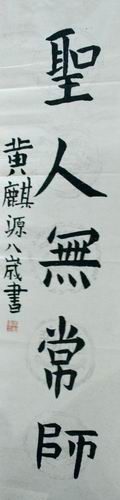 聖人無常師
黄麒源八歲書